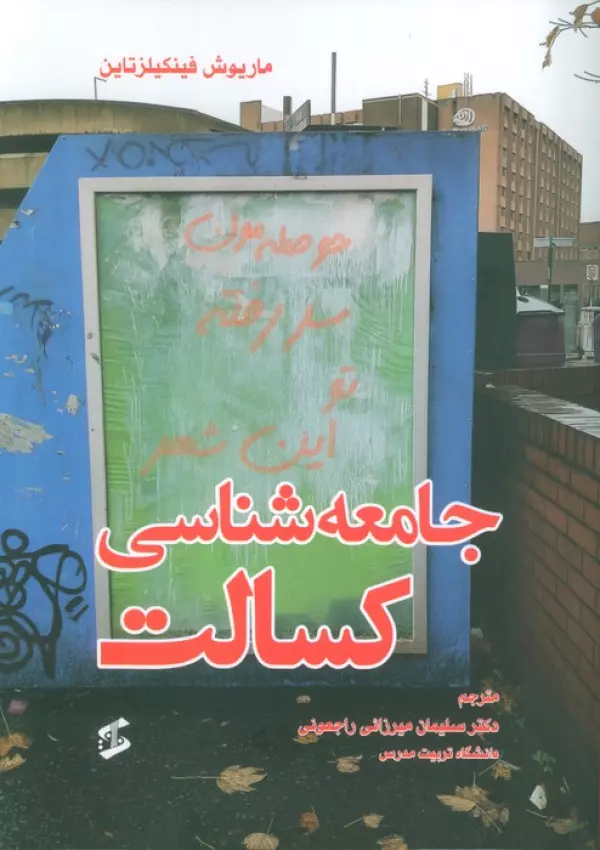 ماریوش فینکیلزتاین
حوصله‌مون
سر رفته
تو
این شهر
جامعه‌شناسی
کسالت
مترجم
دکتر سلیمان میرزائی راجعونی
دانشگاه تربیت مدرس